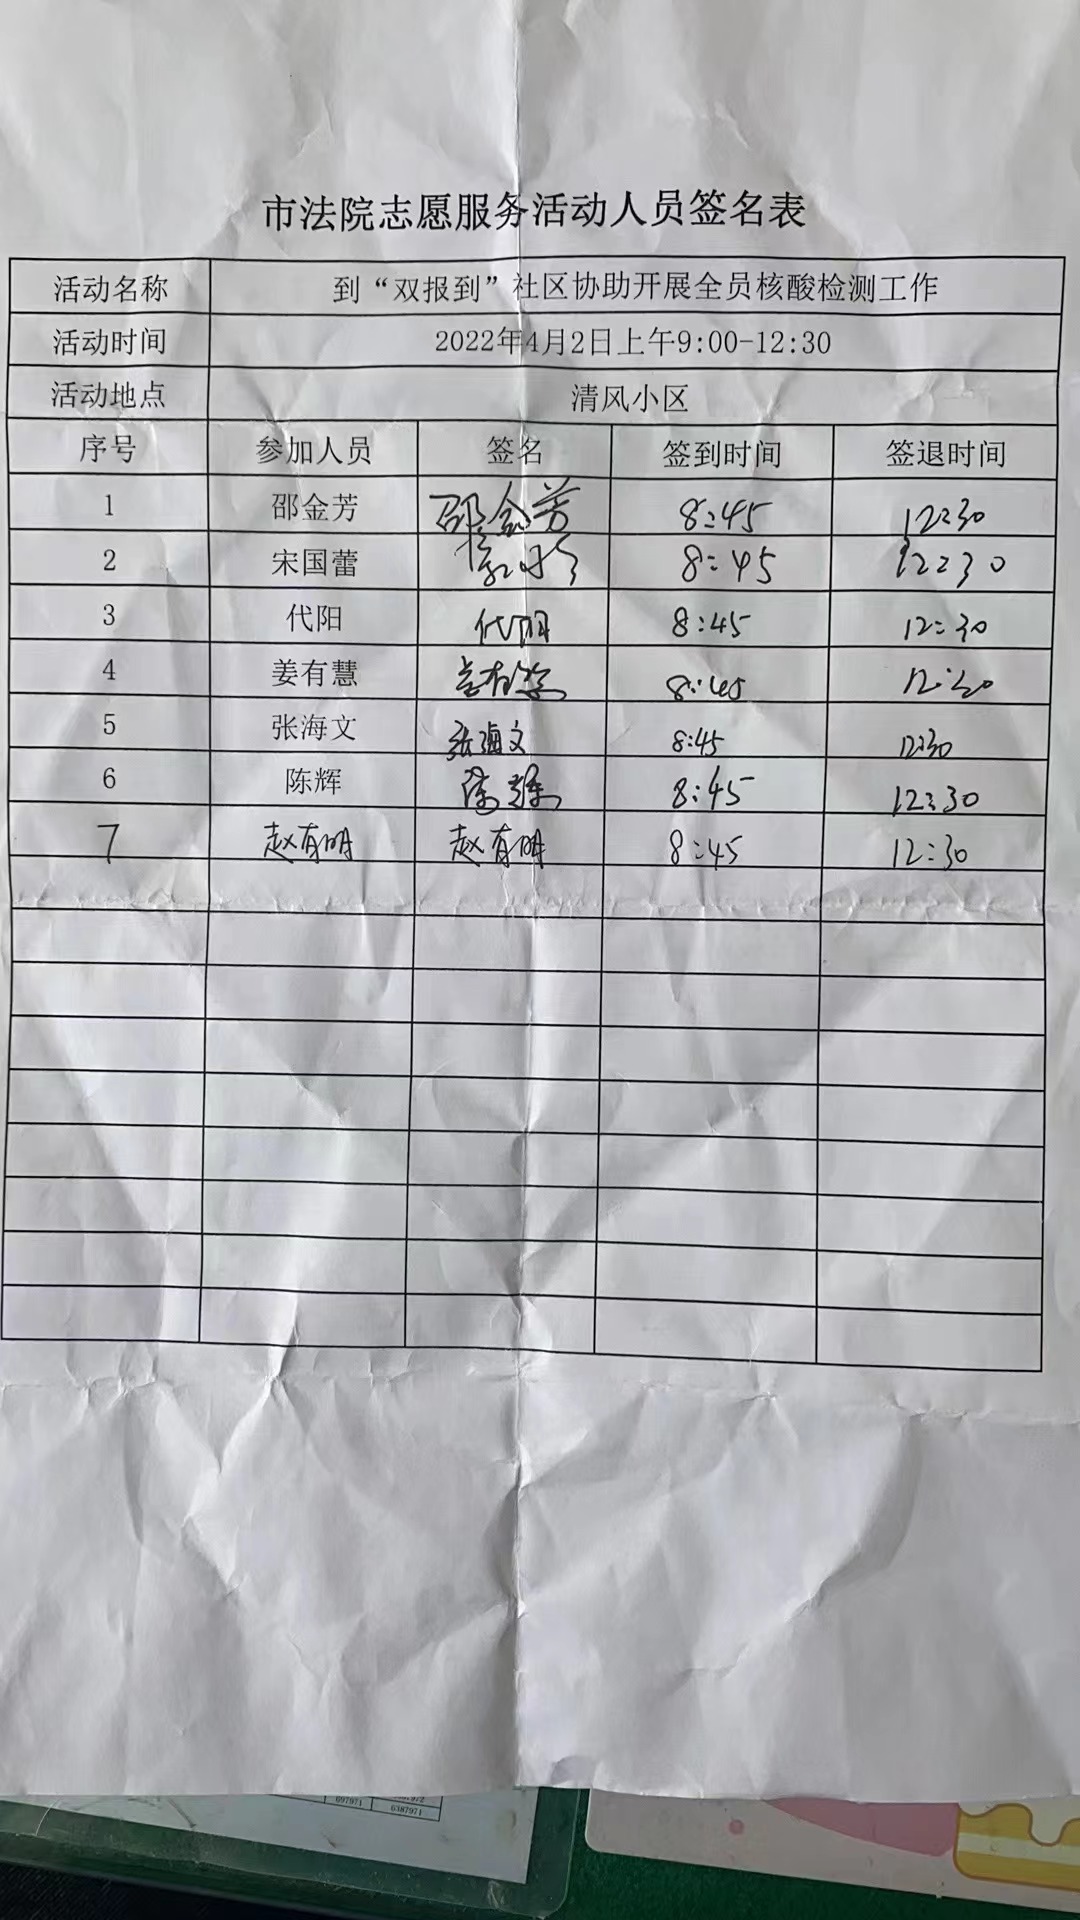 市法院志愿服务活动人员签名表
活动名称 到“双报到”社区协助开展全员核酸检测工作
活动时间 2022年4月2日上午9:00-12:30
活动地点 清风小区
序号 参加人员 签名 签到时间 签退时间
1 邵金芳 邵金芳 8:45 12:30
2 宋国蕾 8:45 12:30
3 代阳 代阳 8:45 12:30
4 姜有慧 姜有慧 8:45 12:30
5 张海文 张海文 8:45 12:30
6 陈辉 陈辉 8:45 12:30
7 赵有明 赵有明 8:45 12:30
697971
6387971